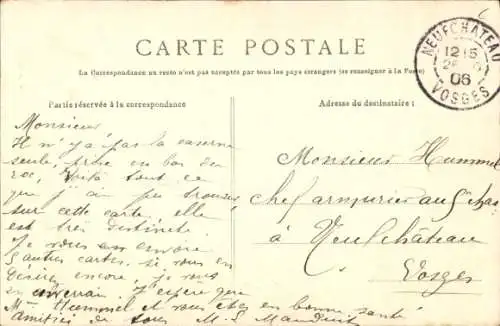 CARTE POSTALE
La Correspondance au recto n'est pas acceptée par tous les pays étrangers (se renseigner à la Poste)
NEUFCHATEAU
12 15
06
VOSGES
Partie réservée à la correspondance
Adresse du destinataire :
Monsieur
Il n'y a pas la caserne
seule, prise en bas du
voilà tout ce
que j'ai pu trouver
sur cette carte, elle
est très distincte
Je vous en envoie
5 autres cartes, si vous en
désirez encore, je vous
en J'espère que
Mme Hummel et vous êtes en bonne santé
amitiés de tous
Monsieur Hummel
chef armurier au
à Neufchâteau
Vosges